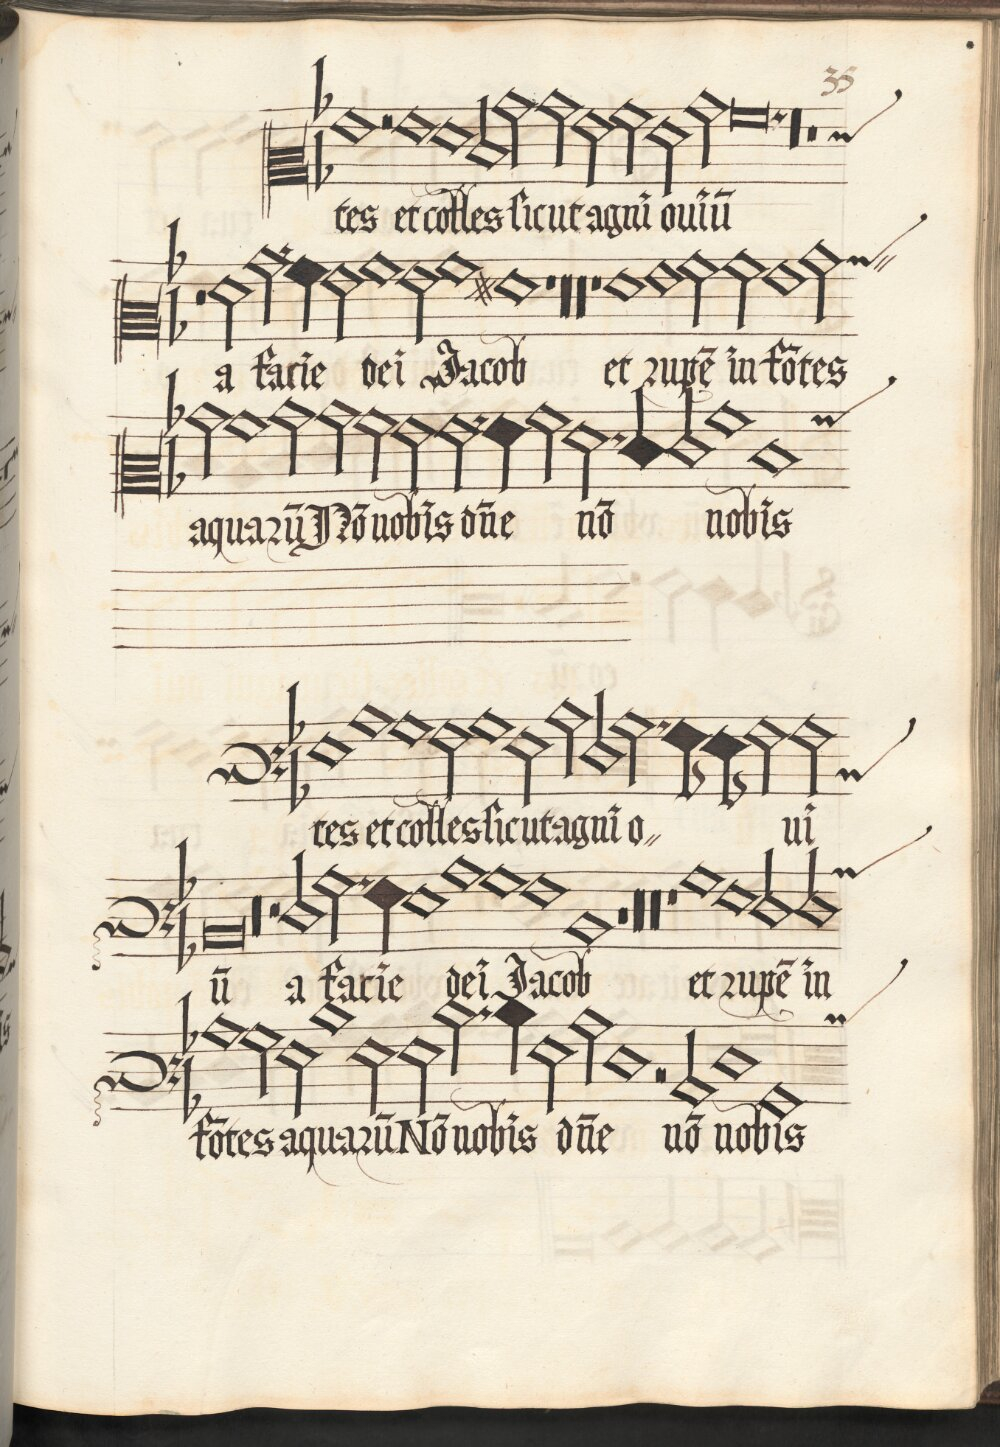 35
tes et colles sicut agni ouiū
a facie dei Jacob et rupē in fōtes
aquarū Nō nobis dn̄e nō nobis
tes et colles sicut agni o〃 ui
ū a facie dei Jacob et rupē in
fōtes aquarū Nō nobis dn̄e nō nobis